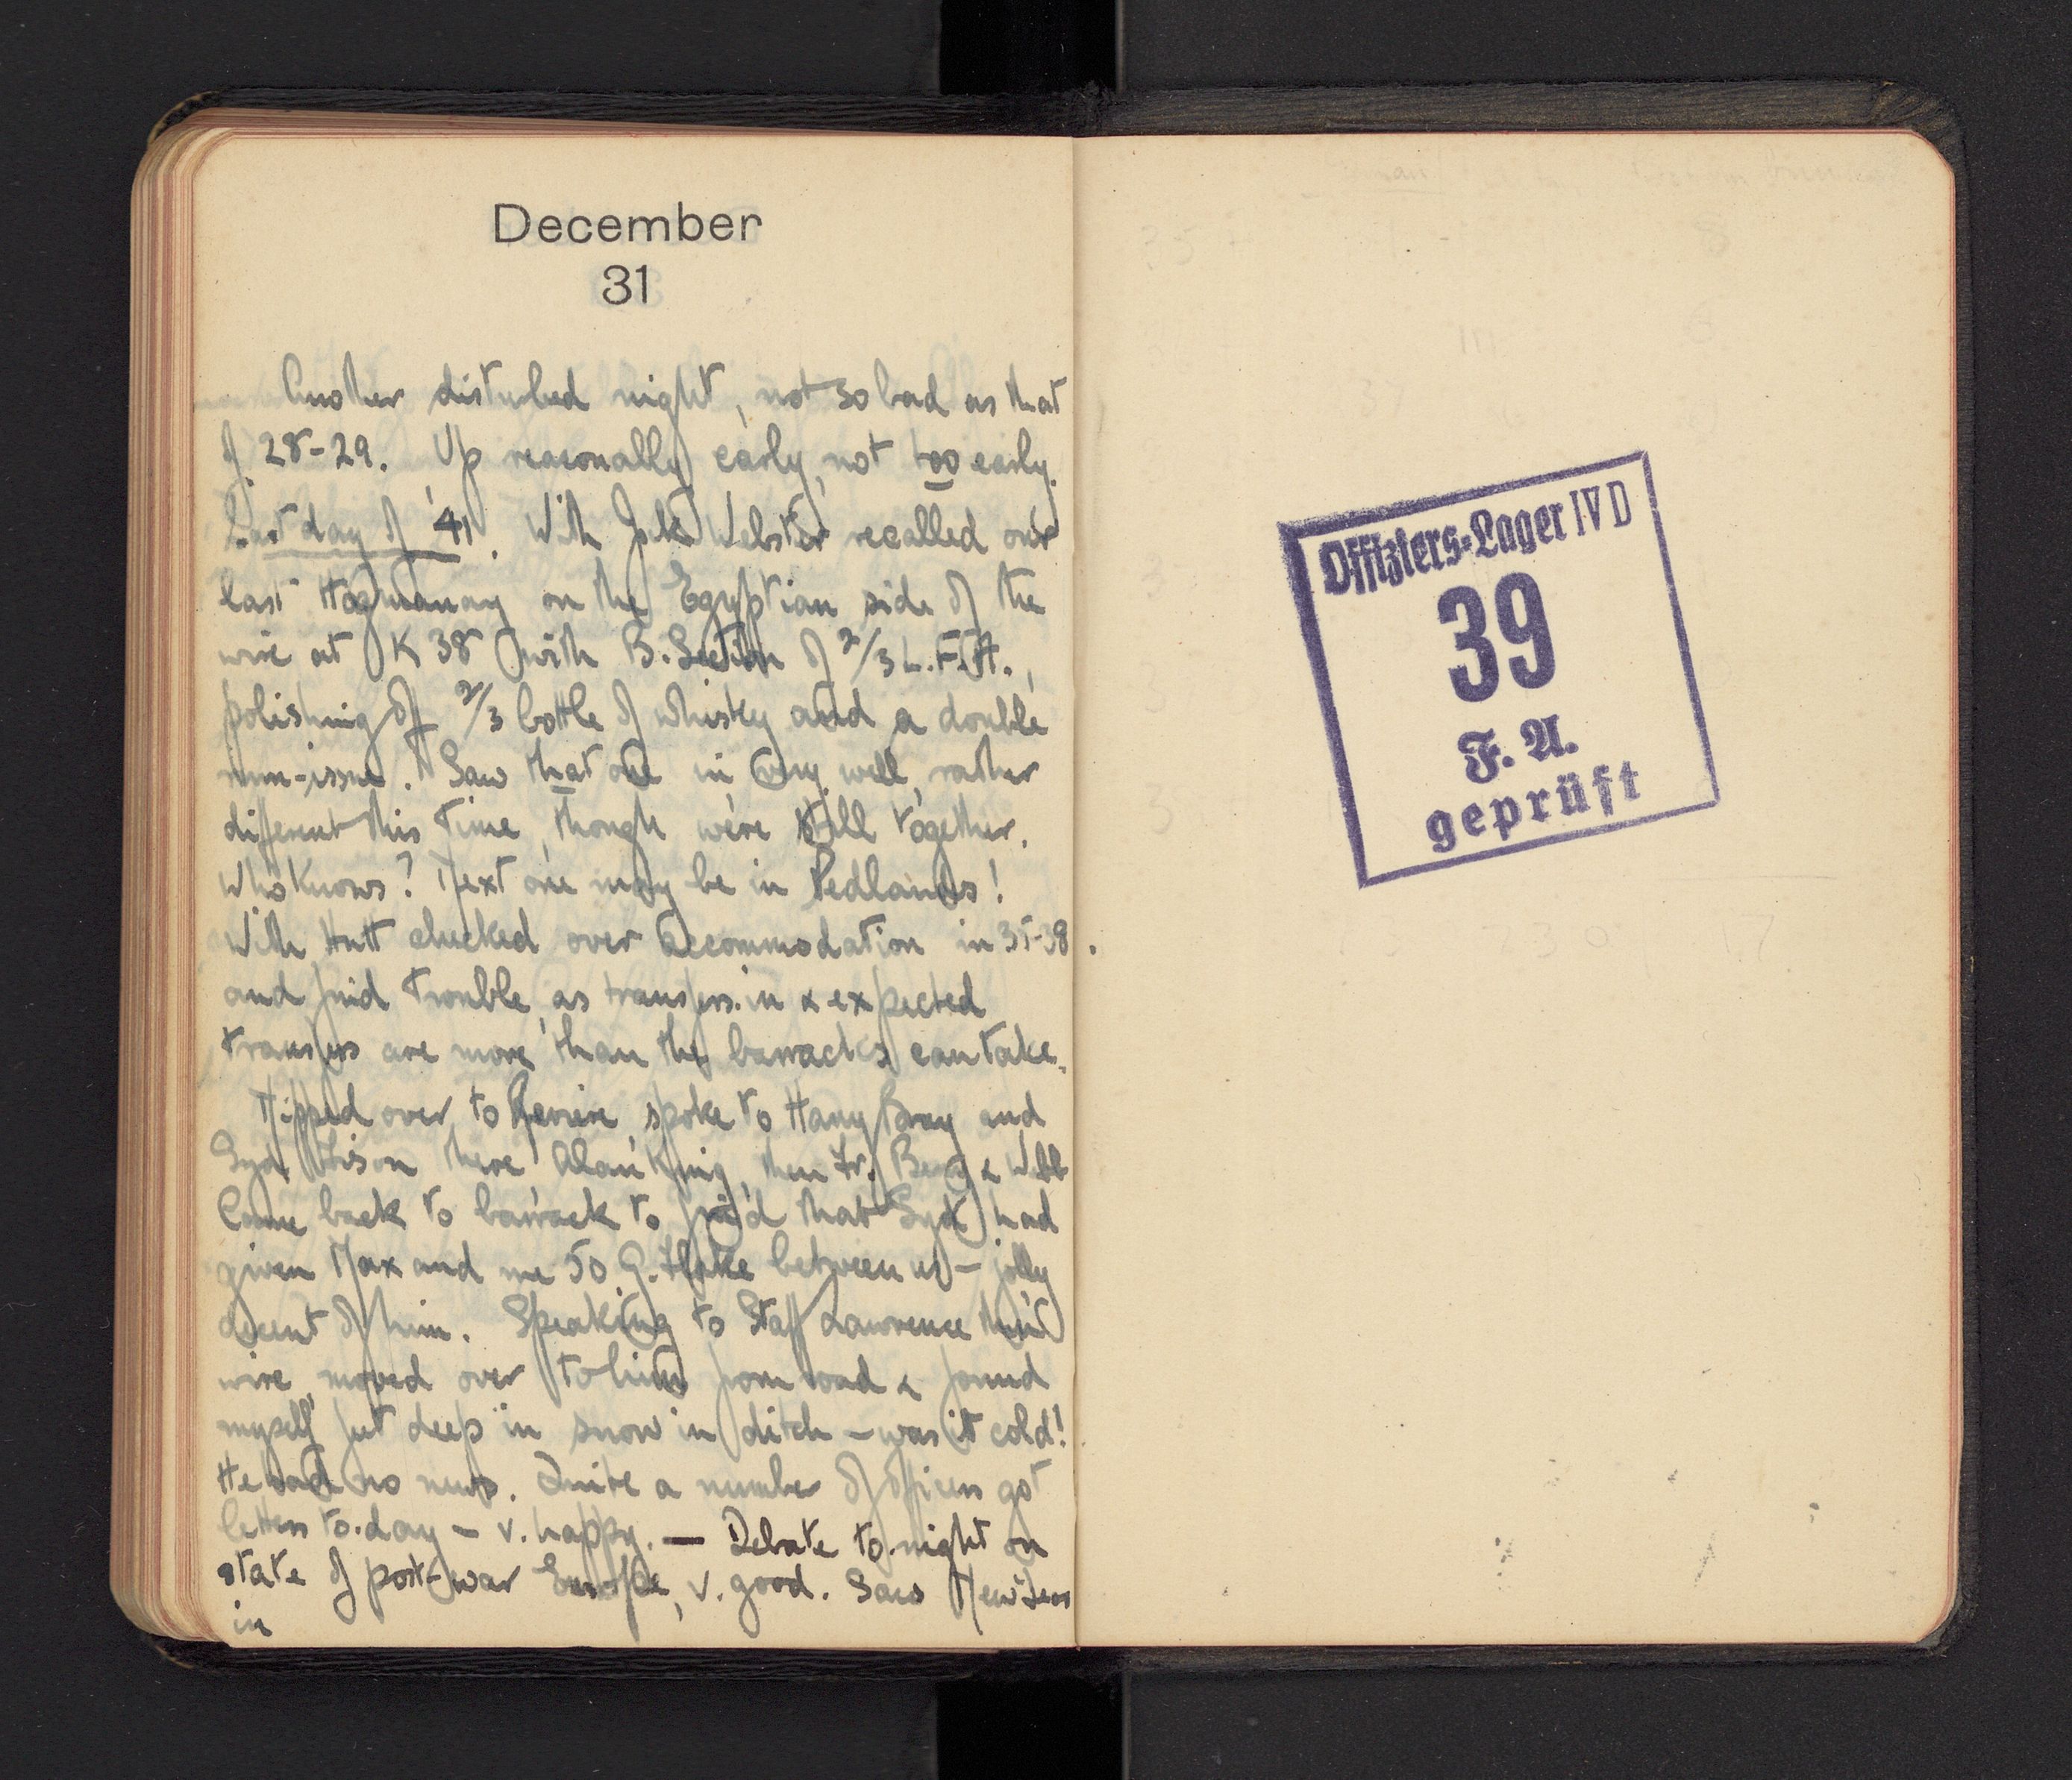 December
31
Another disturbed night, not so bad as that
of 28-29. Up reasonably early, not too early.
Last day of '41. With Jock Webster recalled our
last Hogmanay on the Egyptian side of the
wire at K 38 with B. Section of 2/3 L.F.A.,
polishing off 2/3 bottle of whisky and a double
rum-issue. Saw that one in very well, rather
different this time, though we're still together.
Who knows? Next one may be in Pedlands!
With Hutt checked over accommodation in 35-38.
and find trouble, as transfers.in & expected
transfers are more than the barracks can take.
Nipped over to Revier, spoke to Harry Bray and
Syd there, Alan King, then Fr. & Webb
Came back to barrack to find that Syd had
given Max and me 50 G. Flake between us - jolly
decent of him. Speaking to Staff Lawrence thro'
wire, moved over to him from road & found
myself feet deep in snow in ditch - was it cold!
He had no news. Quite a number of officers got
letters to.day - v. happy. — Debate to.night on
state of post-war Europe, v. good. Saw New Year
in
Offiziers-Lager IV D
39
F. A.
geprüft